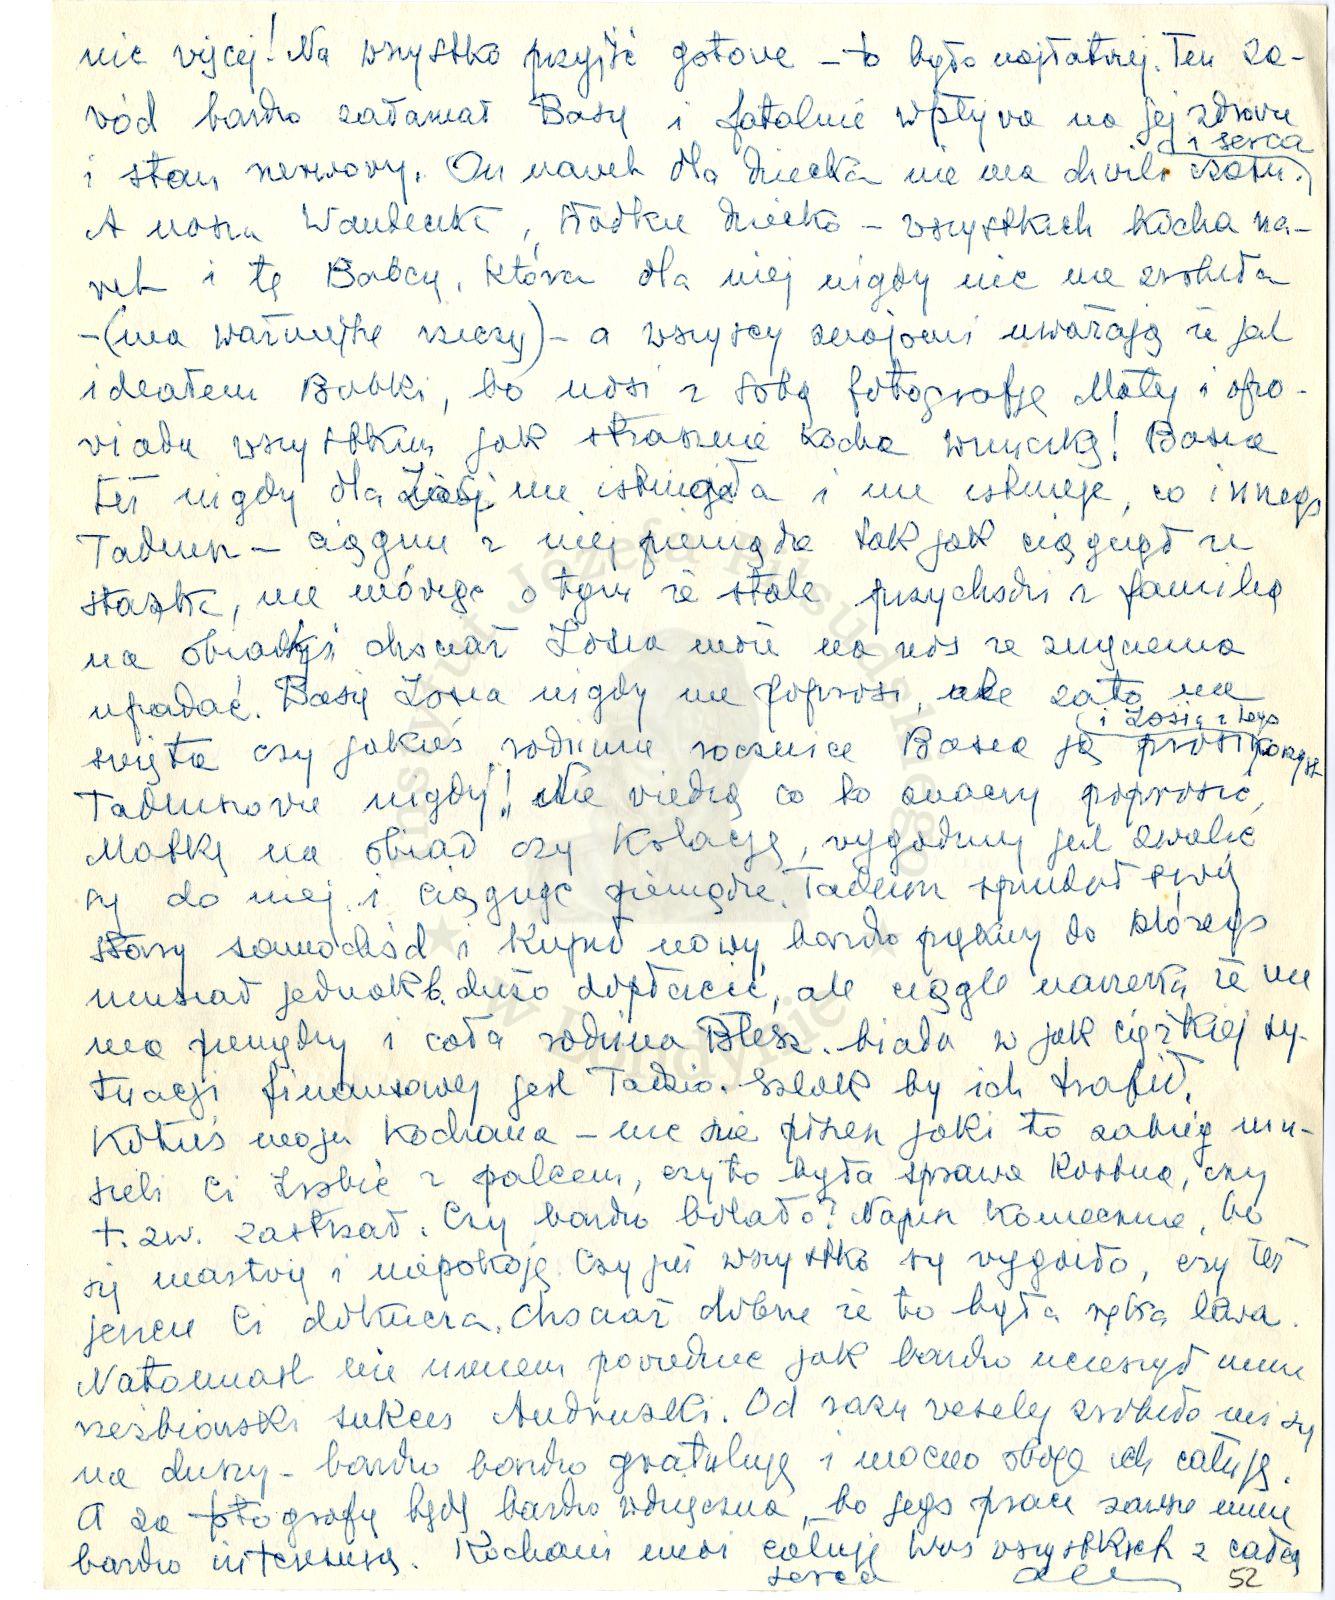 nic więcej! Na wszystko przyjść gotowe – to było najłatwiej. Ten za-
wód bardzo załamał Basię i fatalnie wpływa na jej zdrowie
i serca
i stan nerwowy. On nawet dla dziecka nie ma chwili czasu.
A nasza Wandeczka, słodkie dziecko – wszystkich kocha na-
wet i tę Babcię, która dla niej nigdy nic nie zrobiła
–(ma ważniejsze rzeczy)– a wszyscy znajomi uważają że jest
ideałem Babki, bo nosi z sobą fotografję Małej i opo-
wiada wszystkim jak strasznie kocha wnuczkę! Basia
też nigdy dla Zosi nie istniała i nie istnieje, co innego
Tadeusz – ciągnie z niej pieniądze tak jak ciągnął ze
Staszka, nie mówiąc o tym że stale przychodzi z familią
na obiadki chociaż Zosia może na nos ze zmęczenia
upadać. Basię Zosia nigdy nie poprosi, ale za to na
i Zosia z tego
święta czy jakieś rodzinne rocznice Basia ją prosi
Tadeuszowie nigdy! Nie wiedzą co to znaczy poprosić
Matkę na obiad czy kolację, wygodniej jest zwalić
się do niej i ciągnąć pieniądze. Tadeusz sprzedał swój
stary samochód i kupił nowy, bardzo piękny do którego
musiał jednak b. dużo dopłacić, ale ciągle narzeka że nie
ma pieniędzy i cała rodzina Błesz. biada w jak ciężkiej sy-
tuacji finansowej jest Tadzio. Szlak by ich trafił.
Kotuś moja kochana – nic nie piszesz jaki to zabieg mu-
sieli Ci zrobić z palcem, czy to była sprawa kostna, czy
t. zw. zastrzał. Czy bardzo bolało? Napisz koniecznie, bo
się martwię i niepokoję. Czy już wszystko się wygoiło, czy też
jeszcze Ci dokucza. Chociaż dobrze że to była ręka lewa.
Natomiast nie umiem powiedzieć jak bardzo ucieszył mnie
rzeźbiarski sukces Andruszki. Od razu weselej zrobiło mi się
na duszy – bardzo bardzo gratuluję i mocno oboje ich całuję.
A za fotografię będę bardzo wdzięczna, bo jego prace zawsze mnie
bardzo interesują. Kochani moi całuję Was wszystkich z całego
serca
52
Instytut Józefa Piłsudskiego
w Londynie